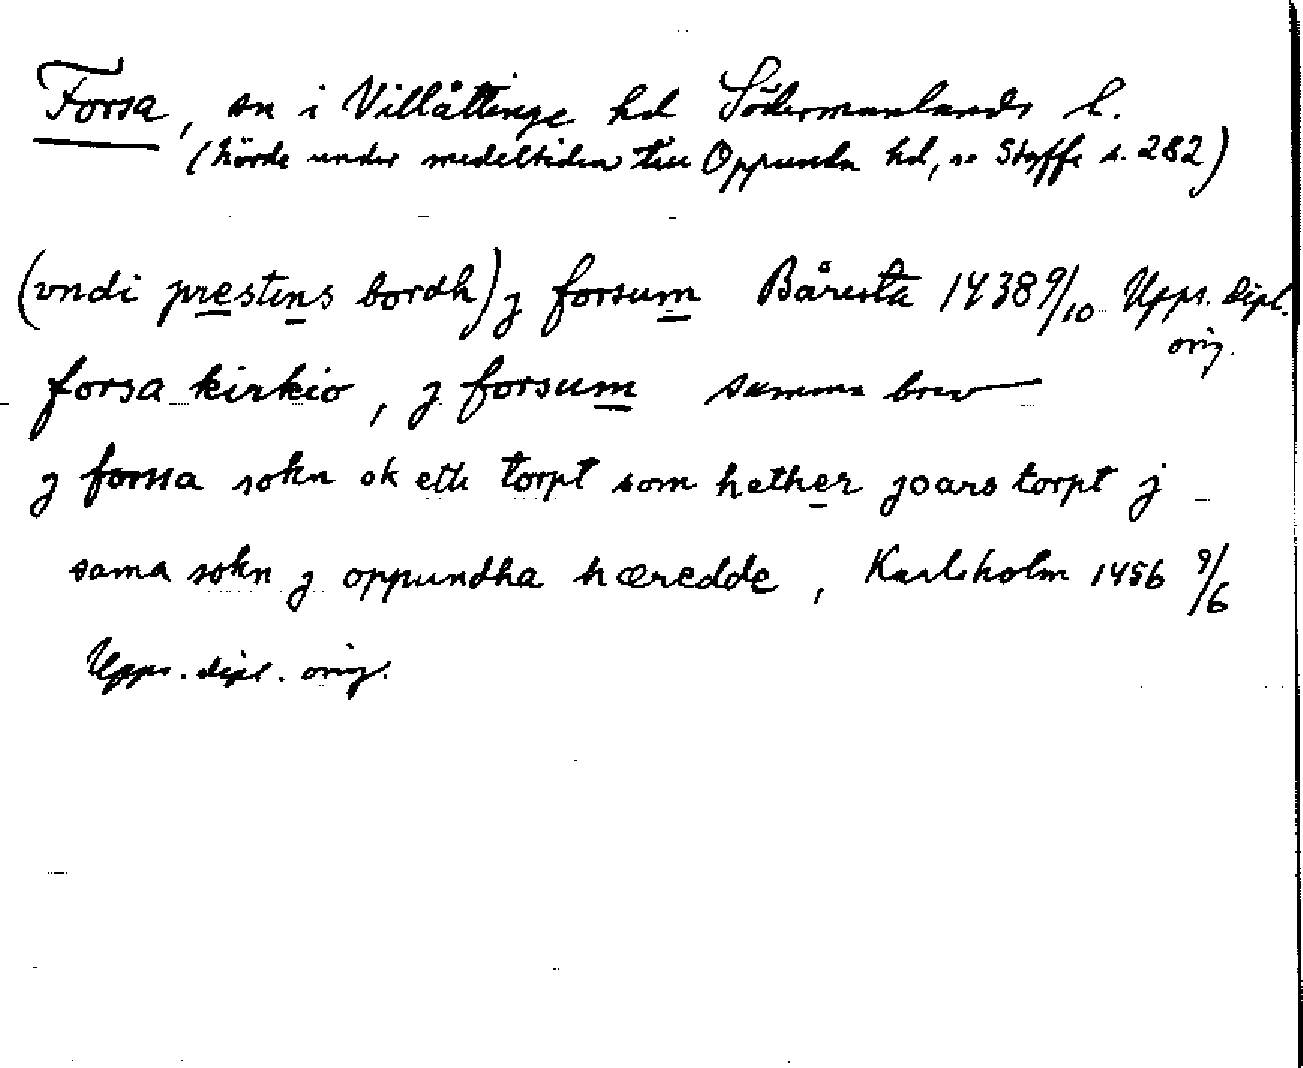 Forsa, sn i Villåttinge hd Södermanlands l.
(hörde under medeltiden till Oppunda hd, se Styffe s. 282)
(vndi prestens bordh) j forsum Bårsta 1438 9/10 Upps. dipl.
orig.
forsa kirkio, j forsum samma brev
j forssa sokn ok eth torpt som hether joars torpt j
sama sokn j oppundha hæredde, Karlsholm 1456 9/6
Upps. dipl. orig.